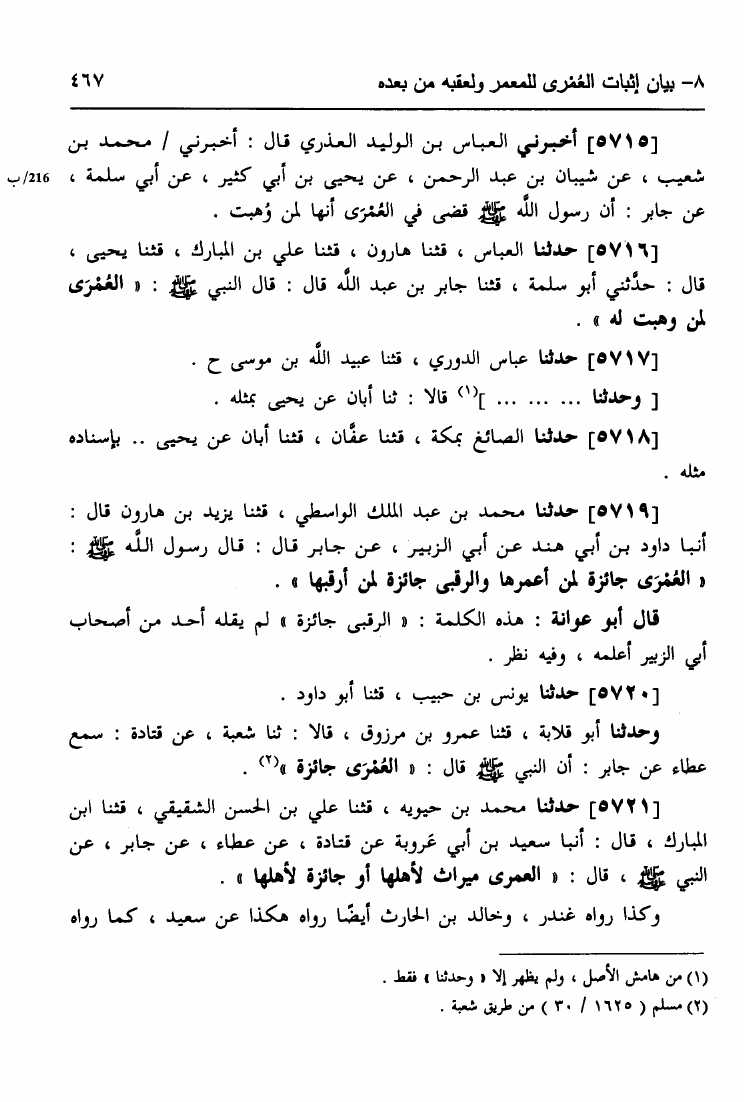 ٨– بيان إثبات العُمْرى للمعمر ولعقبه من بعده ٤٦٧
[٥٧١٥] أخبرني العباس بن الوليد العذري قال : أخبرني / محمد بن
شعيب ، عن شيبان بن عبد الرحمن ، عن يحيى بن أبي كثير ، عن أبي سلمة ، 216/ب
عن جابر : أن رسول اللَّه ﷺ قضى في العُمْرَى أنها لمن وُهبت .
[٥٧١٦] حدثنا العباس ، قثنا هارون ، قثنا علي بن المبارك ، قثنا يحيى ،
قال : حدَّثني أبو سلمة ، قثنا جابر بن عبد اللَّه قال : قال النبي ﷺ : « العُمْرَى
لمن وهبت له » .
[٥٧١٧] حدثنا عباس الدوري ، قثنا عبيد اللَّه بن موسى ح .
[ وحدثنا ... ... ... ](١) قالا : ثنا أبان عن يحيى بمثله .
[٥٧١٨] حدثنا الصائغ بمكة ، قثنا عفَّان ، قثنا أبان عن يحيى .. بإسناده
مثله .
[٥٧١٩] حدثنا محمد بن عبد الملك الواسطي ، قثنا يزيد بن هارون قال :
أنبا داود بن أبي هند عن أبي الزبير ، عن جابر قال : قال رسول اللَّه ﷺ :
« العُمْرَى جائزة لمن أعمرها والرقبى جائزة لمن أرقبها » .
قال أبو عوانة : هذه الكلمة : « الرقبى جائزة » لم يقله أحد من أصحاب
أبي الزبير أعلمه ، وفيه نظر .
[٥٧٢٠] حدثنا يونس بن حبيب ، قثنا أبو داود .
وحدثنا أبو قلابة ، قثنا عمرو بن مرزوق ، قالا : ثنا شعبة ، عن قتادة : سمع
عطاء عن جابر : أن النبي ﷺ قال : « العُمْرَى جائزة »(٢) .
[٥٧٢١] حدثنا محمد بن حيويه ، قثنا علي بن الحسن الشقيقي ، قثنا ابن
المبارك ، قال : أنبا سعيد بن أبي عَروبة عن قتادة ، عن عطاء ، عن جابر ، عن
النبي ﷺ ، قال : « العمرى ميراث لأهلها أو جائزة لأهلها » .
وكذا رواه غندر ، وخالد بن الحارث أيضًا رواه هكذا عن سعيد ، كما رواه
(١) من هامش الأصل ، ولم يظهر إلا « وحدثنا » فقط .
(٢) مسلم ( ١٦٢٥ / ٣٠ ) من طريق شعبة .